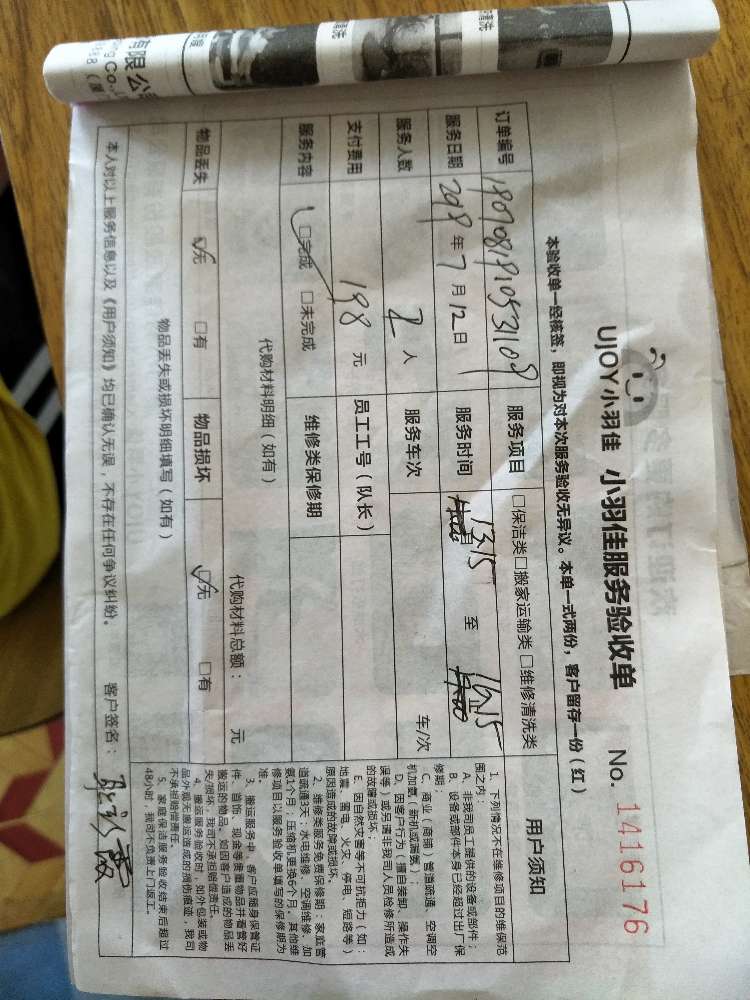 有限公
UJOY小羽佳 小羽佳服务验收单 No. 1416176
本验收单一经核签，即视为对本次服务验收无异议。本单一式两份，客户留存一份（红）
订单编号 服务项目 □保洁类□搬家运输类□维修清洗类
服务日期 2019年7月12日 服务时间 13:15 至 16:15
服务人数 2 人 服务车次 车/次
支付费用 198 元 员工工号（队长）
服务内容 □完成 □未完成 维修类保修期
代购材料明细（如有） 代购材料总额： 元
物品丢失 □无 □有 物品损坏 □无 □有
物品丢失或损坏明细填写（如有）
本人对以上服务信息以及《用户须知》均已确认无误，不存在任何争议纠纷。 客户签名：
用户须知
1、下列情况不在维修项目的维保范
围之内：
A、非我司员工提供的设备或部件；
B、设备或部件本身已经超过出厂保
修期；
C、商业（商铺）管道疏通、空调空
机加氨（新机或漏氨）；
D、因客户行为（擅自装卸、操作失
误等）或另请非我司人员检修所造成
的故障或损坏；
E、因自然灾害等不可抗拒力（如：
地震、雷电、火灾、停电、短路等）
原因造成的故障或损坏。
2、维修类服务免费保修期：家庭管
道疏通3天；水电维修、空调维修、加
氨1个月；压缩机更换6个月。其他维
修项目以服务验收单填写的保修期为
准。
3、搬运服务中，客户应随身保管证
件、首饰、现金等贵重物品并看管好
搬运的物品，如因客户造成的物品丢
失/损坏，我司不承担赔偿责任。
4、搬运服务验收时，如外包装或物
品外观无搬运造成的损伤痕迹，我司
不承担赔偿责任。
5、家庭保洁服务验收结束后超过
48小时，我司不负责上门返工。